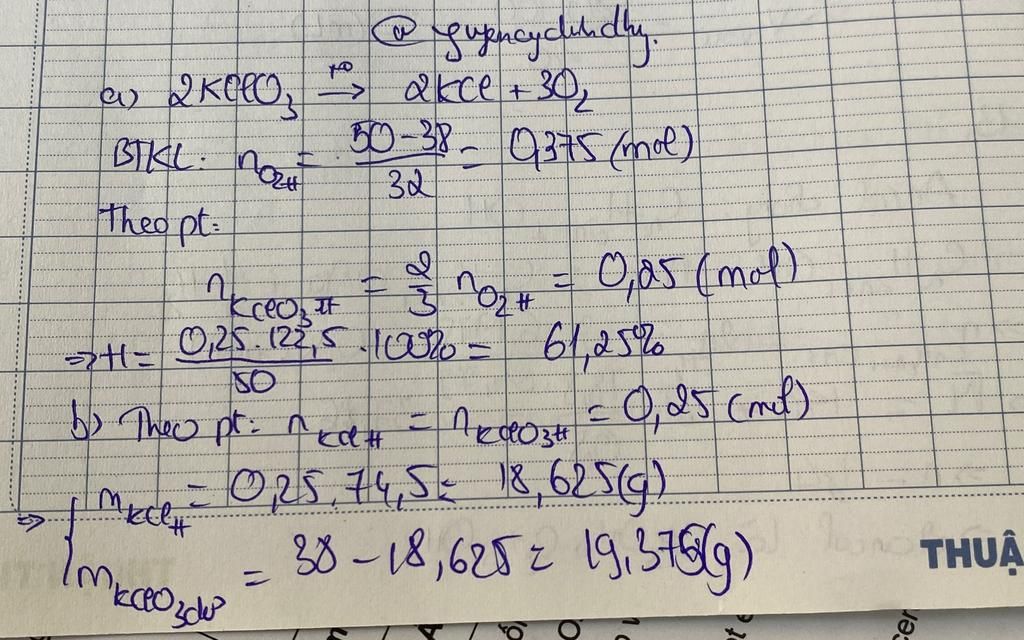 a) 2KClO3 t° → 2KCl + 3O2
BTKL: nO2pư = 50-38 / 32 = 0,375 (mol)
Theo pt:
nKClO3pư = 2/3 nO2pư = 0,25 (mol)
=> H = 0,25.122,5 / 50 .100% = 61,25%
b) Theo pt: nKClpư = nKClO3pư = 0,25 (mol)
=> { mKClpư = 0,25.74,5 = 18,625(g)
mKClO3dư = 38 - 18,625 = 19,375(g)
THUẬ